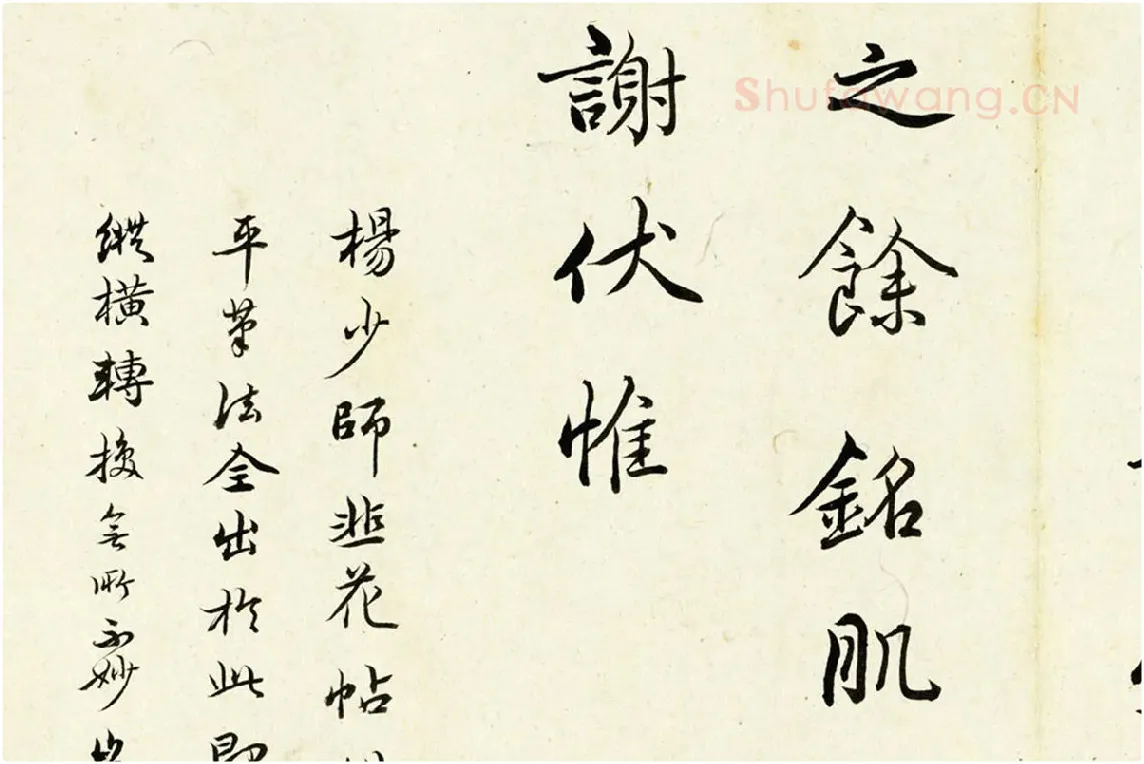 之餘銘肌
謝伏惟
楊少師韭花帖
平筆法全出於此即
縱橫轉換無所不妙
Shufawang.CN